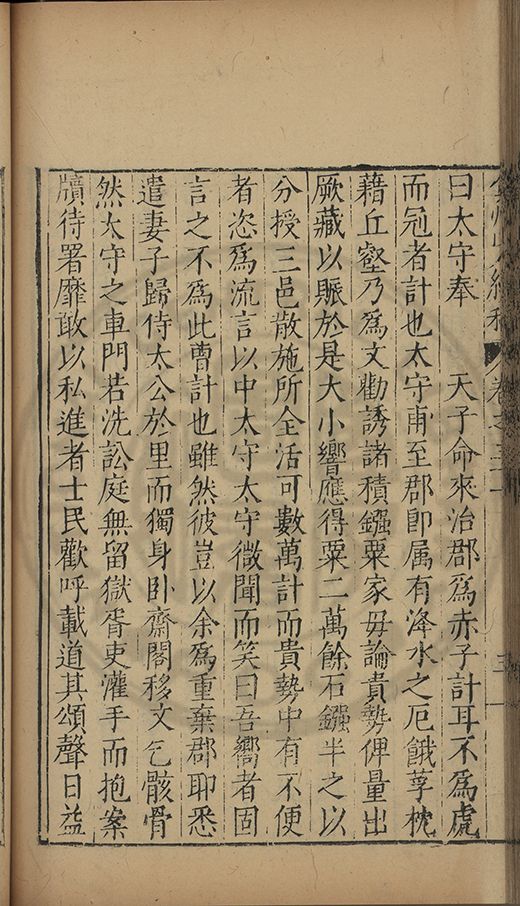 曰太守奉　天子命來治郡爲赤子計耳不爲虎
而冠者計也太守甫至郡卽属有洚水之厄餓莩枕
藉丘壑乃爲文勸誘諸積鏹粟家毋論貴勢俾量出
厥藏以賑於是大小響應得粟二萬餘石鏹半之以
分授三邑散施所全活可數萬計而貴勢中有不便
者恣爲流言以中太守太守微聞而笑曰吾嚮者固
言之不爲此曹計也雖然彼豈以余爲重棄郡耶悉
遣妻子歸侍太公於里而獨身臥齋閣移文乞骸骨
然太守之車門若洗訟庭無留獄胥吏灌手而抱案
牘待署靡敢以私進者士民歡呼載道其頌聲日益